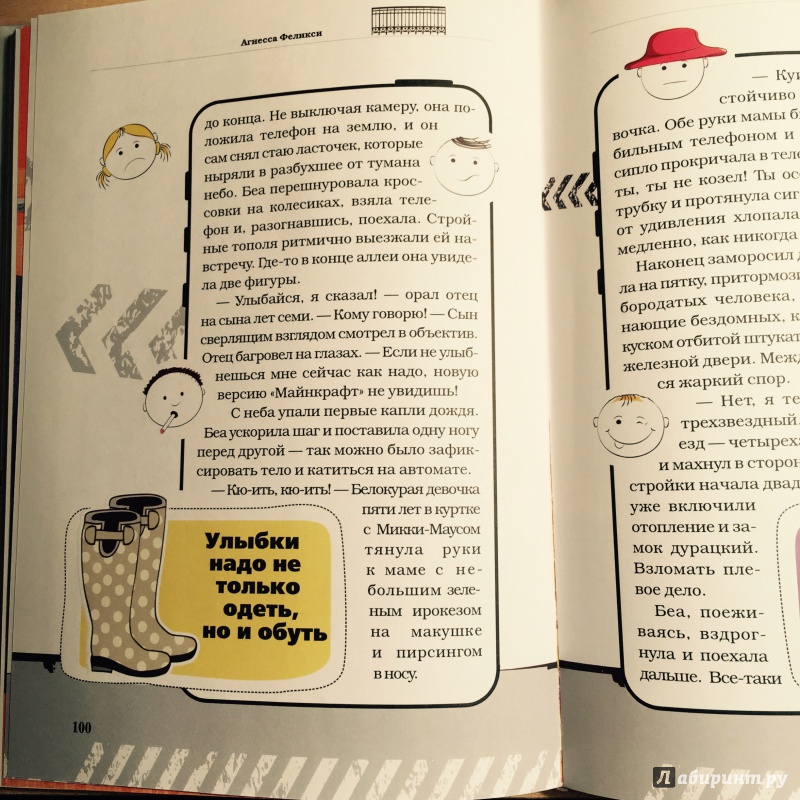 Агнесса Феликси
до конца. Не выключая камеру, она по-
ложила телефон на землю, и он
сам снял стаю ласточек, которые
ныряли в разбухшее от тумана
небо. Беа перешнуровала крос-
совки на колесиках, взяла теле-
фон и, разогнавшись, поехала. Строй-
ные тополя ритмично выезжали ей на-
встречу. Где-то в конце аллеи она увиде-
ла две фигуры.
— Улыбайся, я сказал! — орал отец
на сына лет семи. — Кому говорю! — Сын
сверлящим взглядом смотрел в объектив.
Отец багровел на глазах. — Если не улыб-
нешься мне сейчас как надо, новую
версию «Майнкрафт» не увидишь!
С неба упали первые капли дождя.
Беа ускорила шаг и поставила одну ногу
перед другой — так можно было зафик-
сировать тело и катиться на автомате.
— Кю-ить, кю-ить! — Белокурая девочка
пяти лет в куртке
с Микки-Маусом
тянула руки
к маме с не-
большим зеле-
ным ирокезом
на макушке
и пирсингом
в носу.
Улыбки
надо не
только
одеть,
но и обуть
100
стойчиво
вочка. Обе руки мамы
бильным телефоном и
сипло прокричала в
ты, ты не козел! Ты
трубку и протянула
от удивления хлопала
медленно, как никогда
Наконец заморосил
ла на пятку,
бородатых человека,
нающие бездомных,
куском отбитой
железной двери.
ся жаркий спор.
— Нет, я
трехзвездный.
езд —
и махнул в
стройки начала
уже включили
отопление и за-
мок дурацкий.
Взломать пле-
вое дело.
Беа, поежи-
ваясь, вздрог-
нула и поехала
дальше. Все-таки
Лабиринт.ру